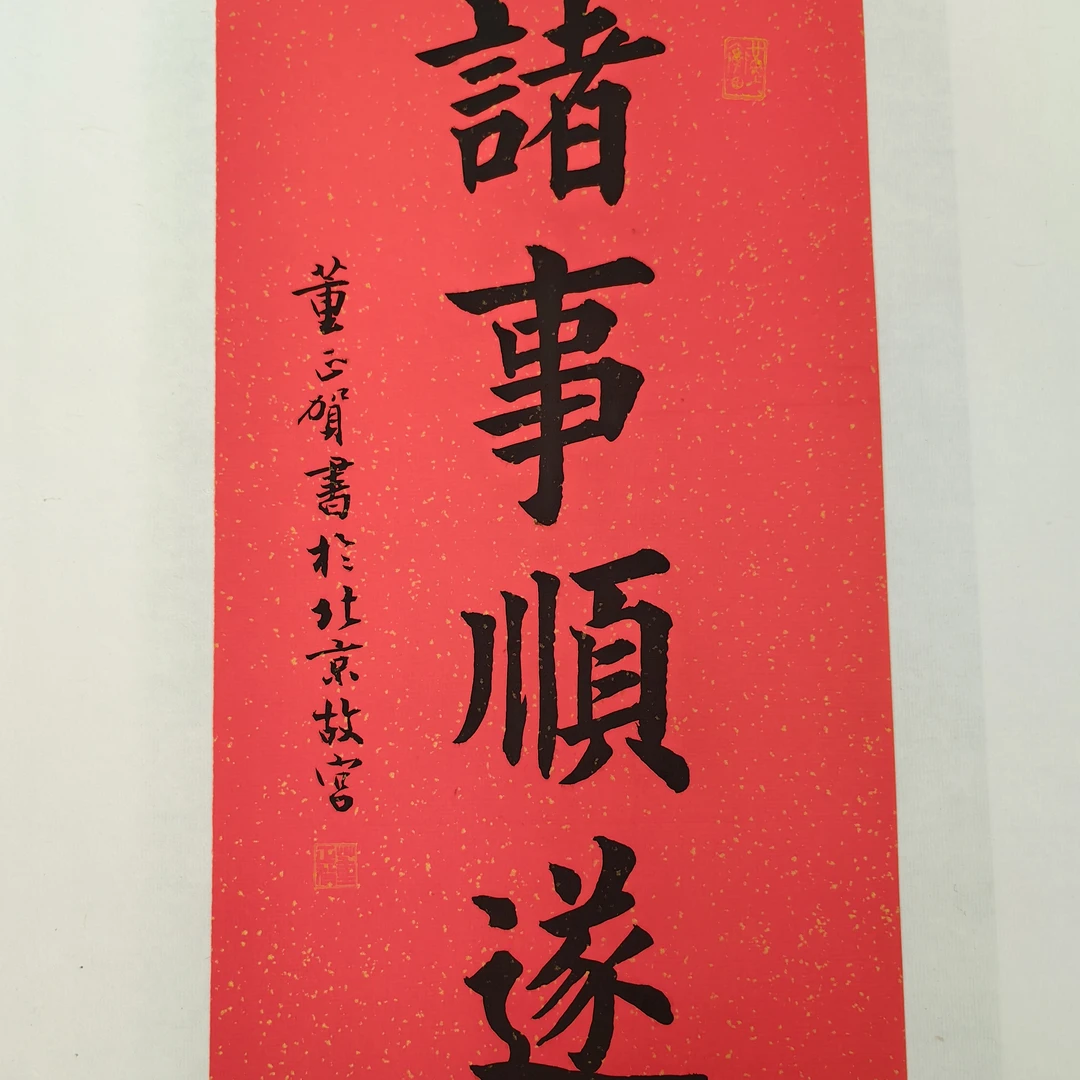 諸事順遂
董正賀書於北京故宮